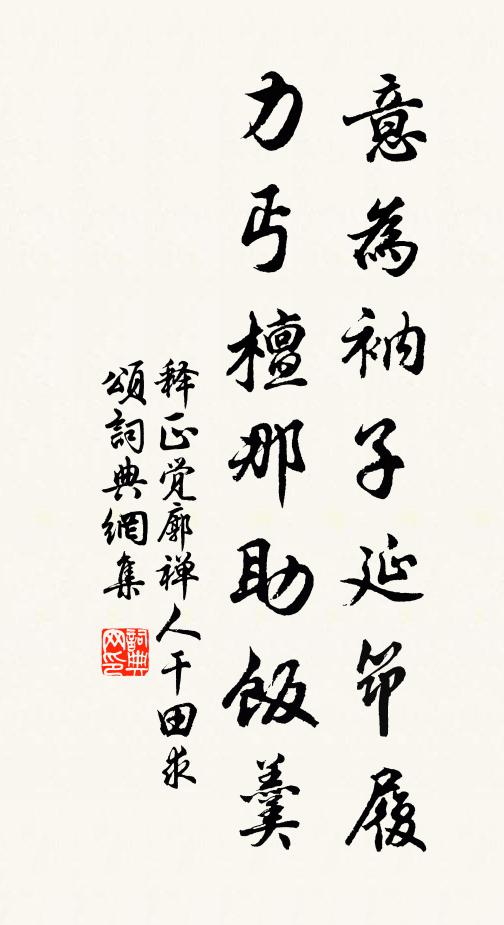 意為衲子延筇履
力丐檀那助飯羹
释正觉廓禅人干田求
頌詞典網集
詞典网印